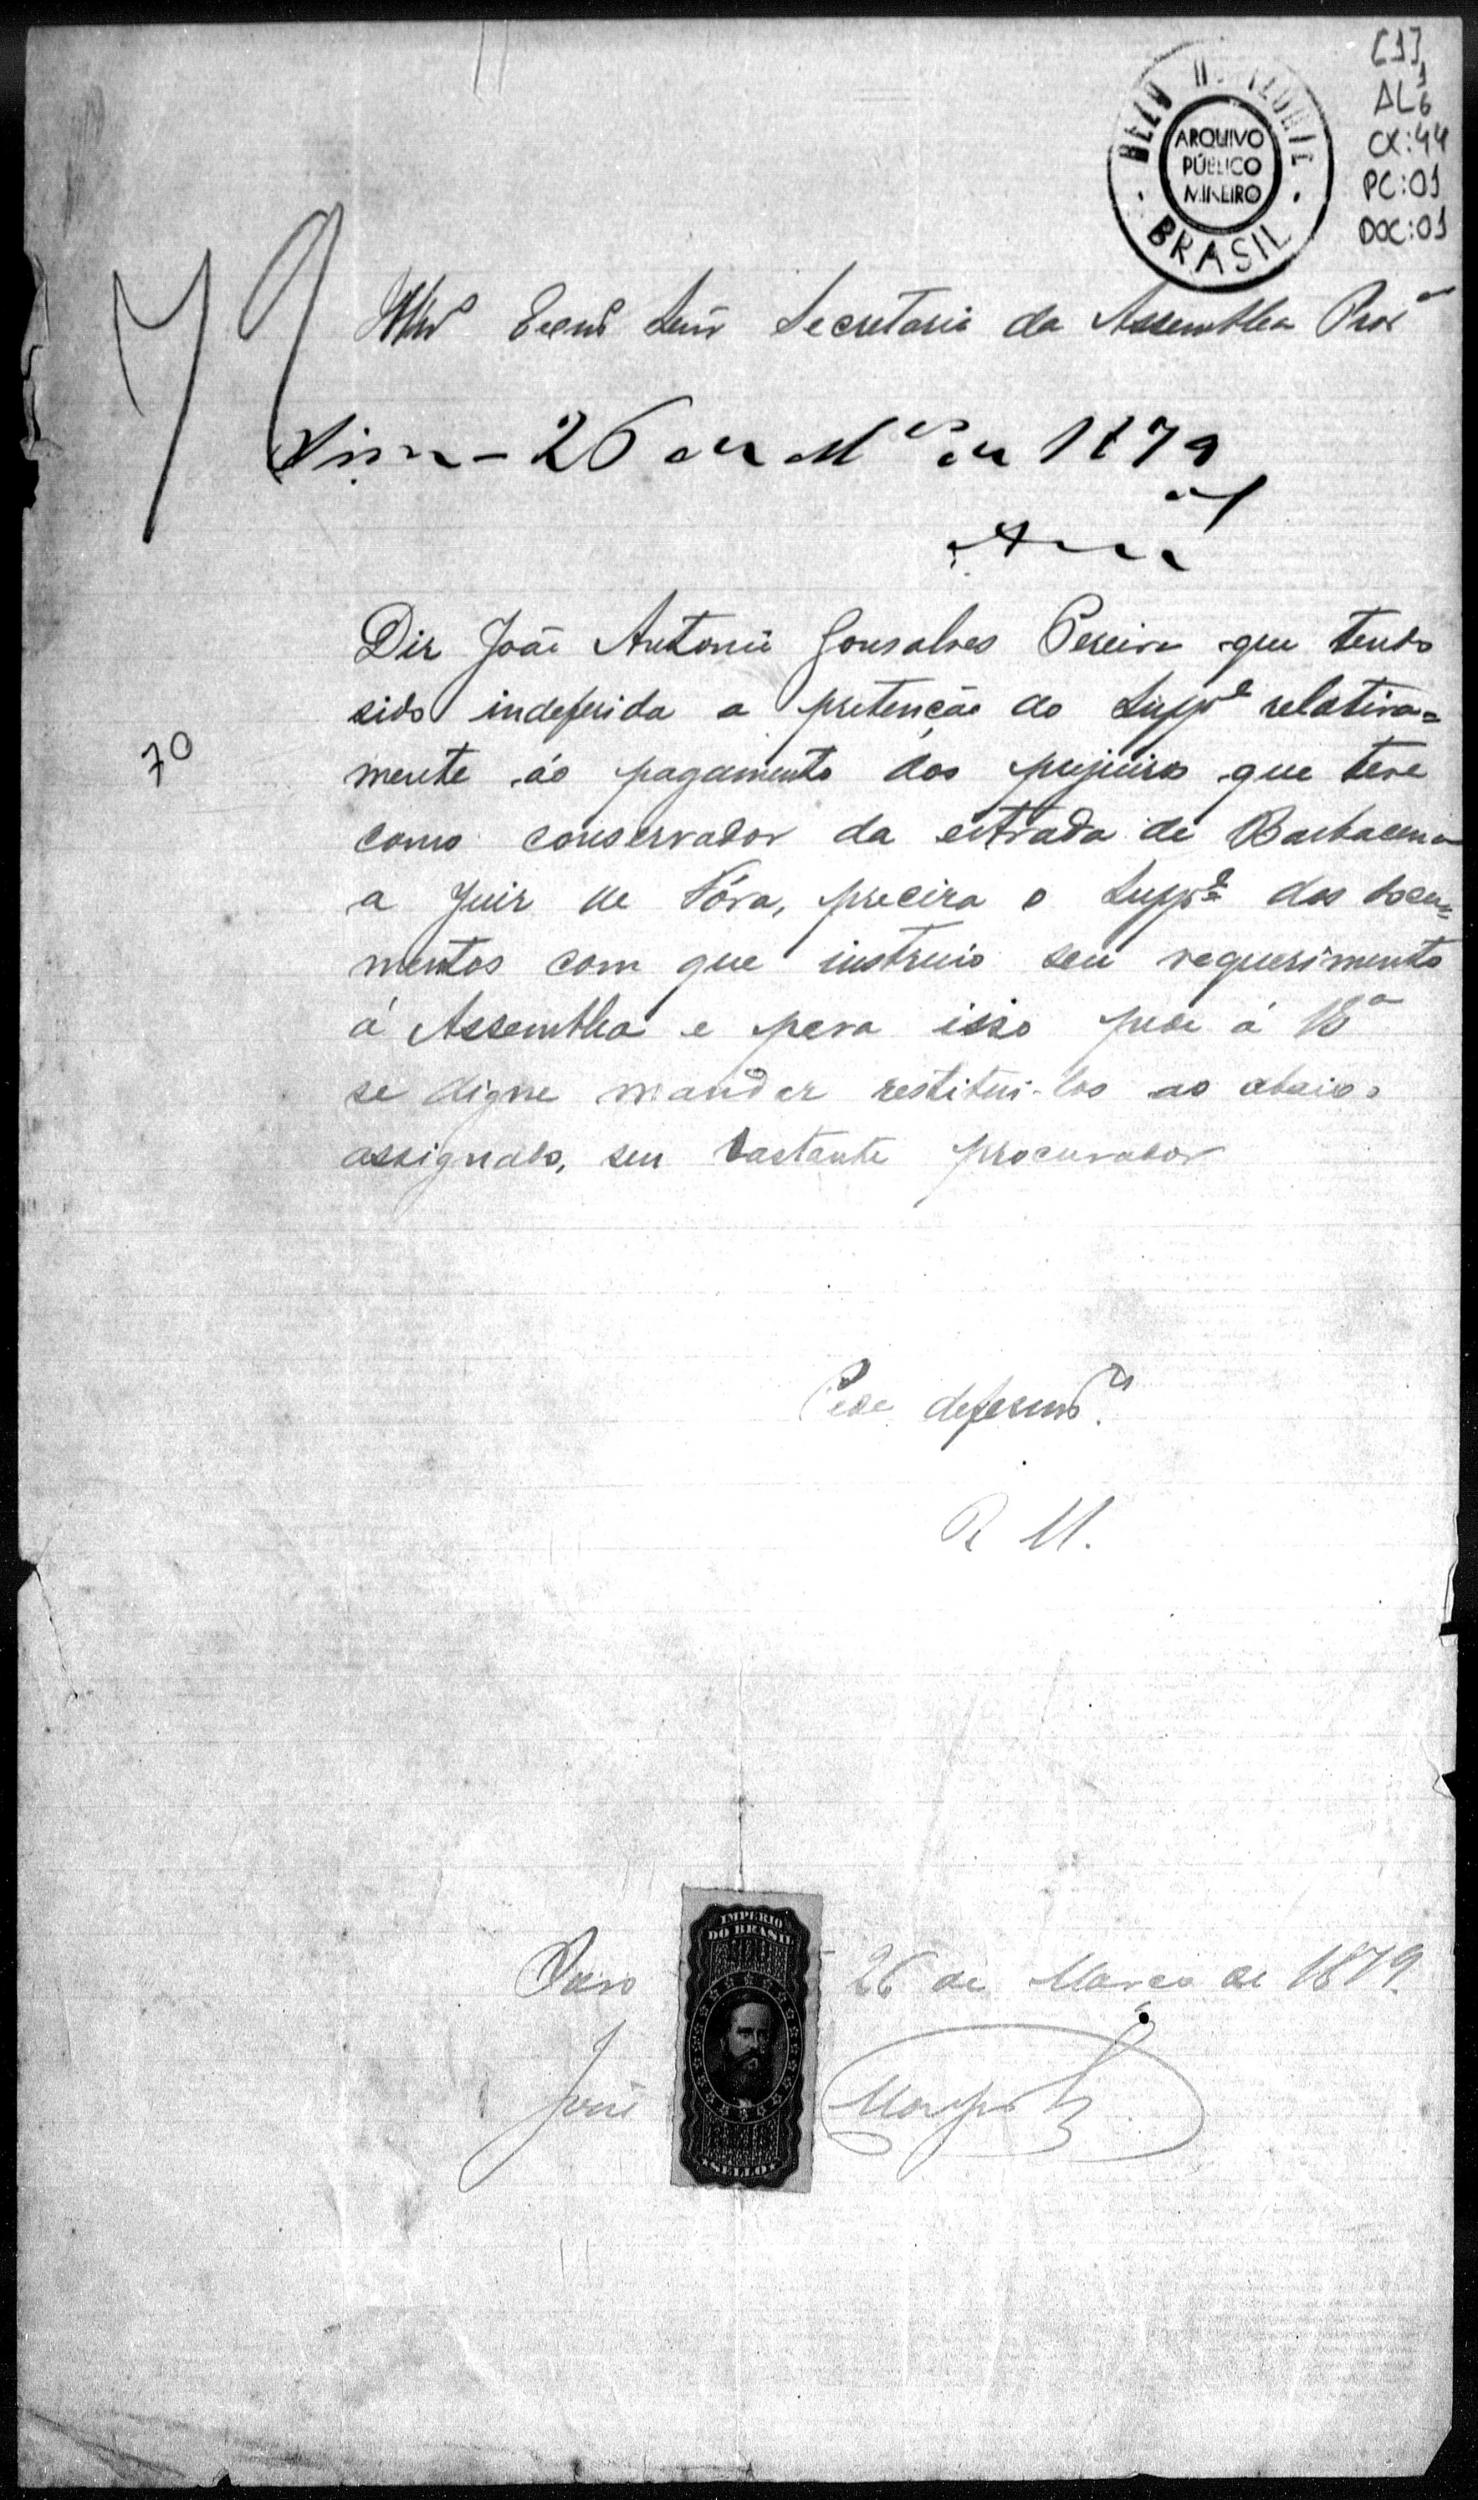 [1]
AL 1/6
CX:44
PC:01
DOC:01
BELO HORIZONTE
ARQUIVO
PÚBLICO
MINEIRO
BRASIL
79
Illmo Exmo Senr Secretario da Assemblea Proval
Sim - 26 de Mço de 1879
Diz João Antonio Gonsalves Pereira que tendo
sido indeferida a pretenção do Suppe relativa=
mente áo pagamento dos prejuizos que teve
70
como conservador da estrada de Barbacena
a Juiz de Fóra, preciza o Suppe dos docu=
mentos com que instruio seu requerimento
á Assemblea e para isso pede á
se digne mandar restitui-los ao abaixo
assignado, seu bastante procurador
Pede deferimto
R M.
IMPERIO
DO BRASIL
Ouro 26 de Março de 1879.
José
SELLO